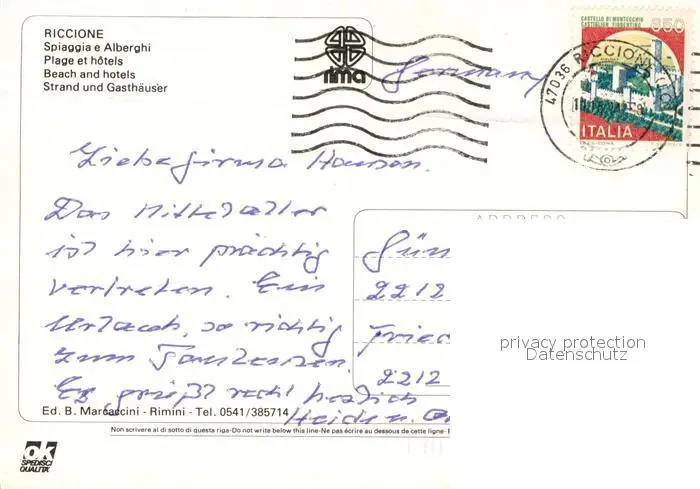 RICCIONE
Spiaggia e Alberghi
Plage et hôtels
Beach and hotels
Strand und Gasthäuser
rima
Germany
CASTELLO DI MONTECCHIO
CASTIGLION FIORENTINO
650
47036 RICCIONE
ITALIA
Liebe Firma Hansen.
Das Mittelalter
ist hier prächtig
vertreten. Ein
Urlaub, so richtig
zum Faulenzen.
Es grüßt recht herzlich
Heiden
ADDRESS
Gün
2212
Frie
2212
privacy protection
Datenschutz
Ed. B. Marcaccini - Rimini - Tel. 0541/385714
Non scrivere al di sotto di questa riga-Do not write below this line-Ne pas écrire au dessous de cette ligne-
ok
SPEDISCI
QUALITA'